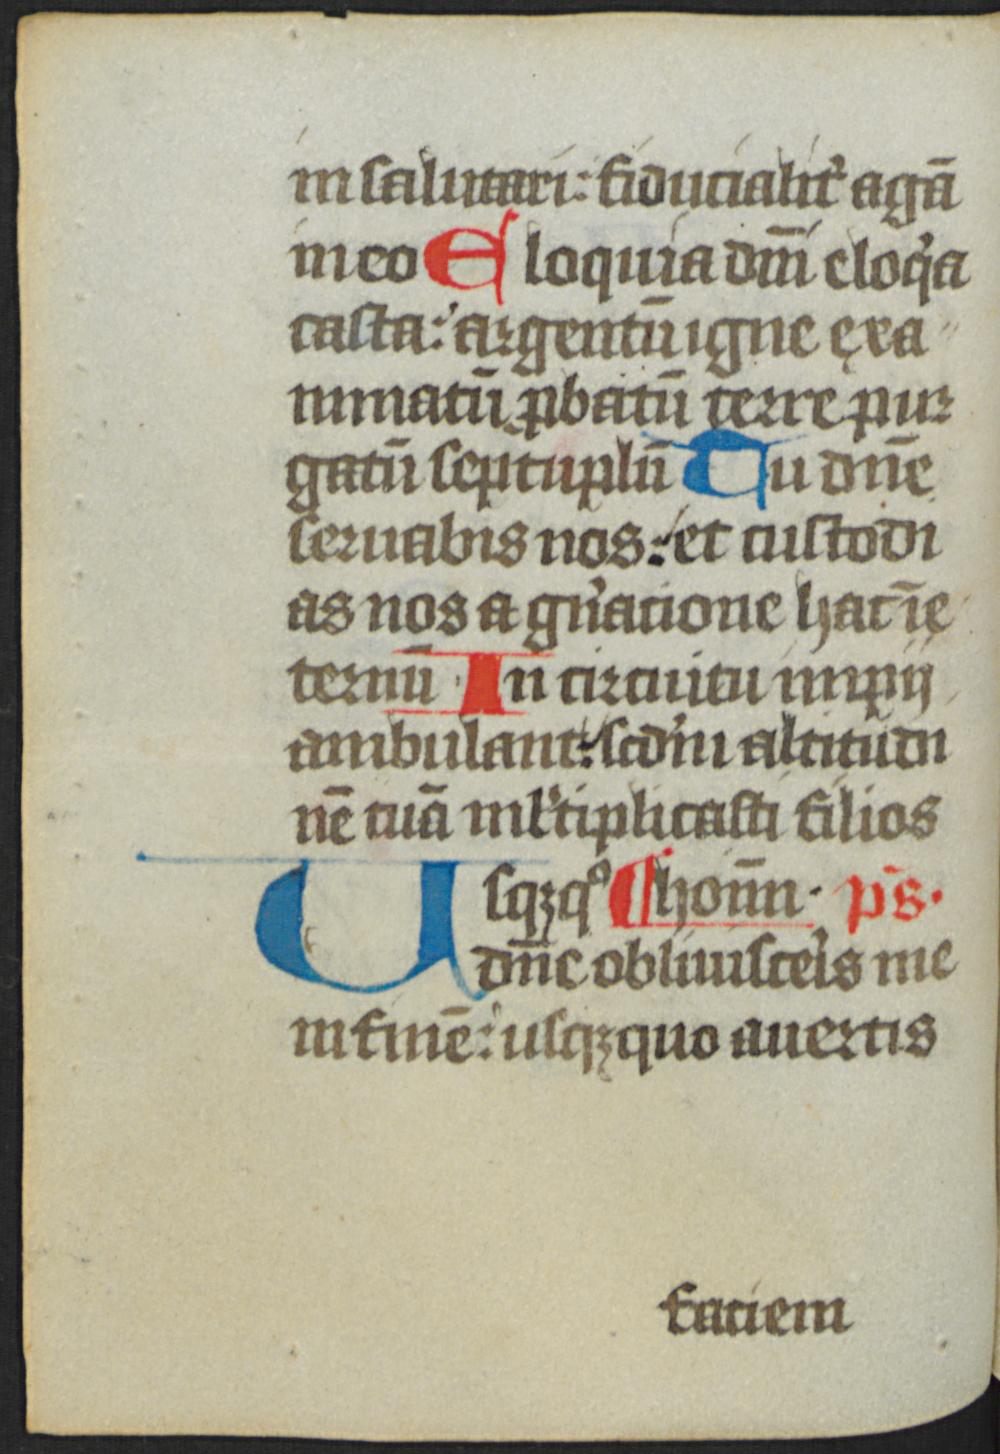 in salutari: fiducialit᷑ agā
in eo Eloquia dm̄i eloq͛a
casta: argentū igne exa
minatū ꝓbatū terre pur
gatū septuplū Tu dn̄e
seruabis nos: et custodi
as nos a gn͛atione hac ī e
ternū In circuitu impij
ambulant: scd͛m altitudi
nē tuā ml͛tiplicasti filios
Usqꝫqͦ ¶ hom̄n · p̄s ·
dn̄e obliuisce͛is me
in finē: usqꝫquo auertis
faciem